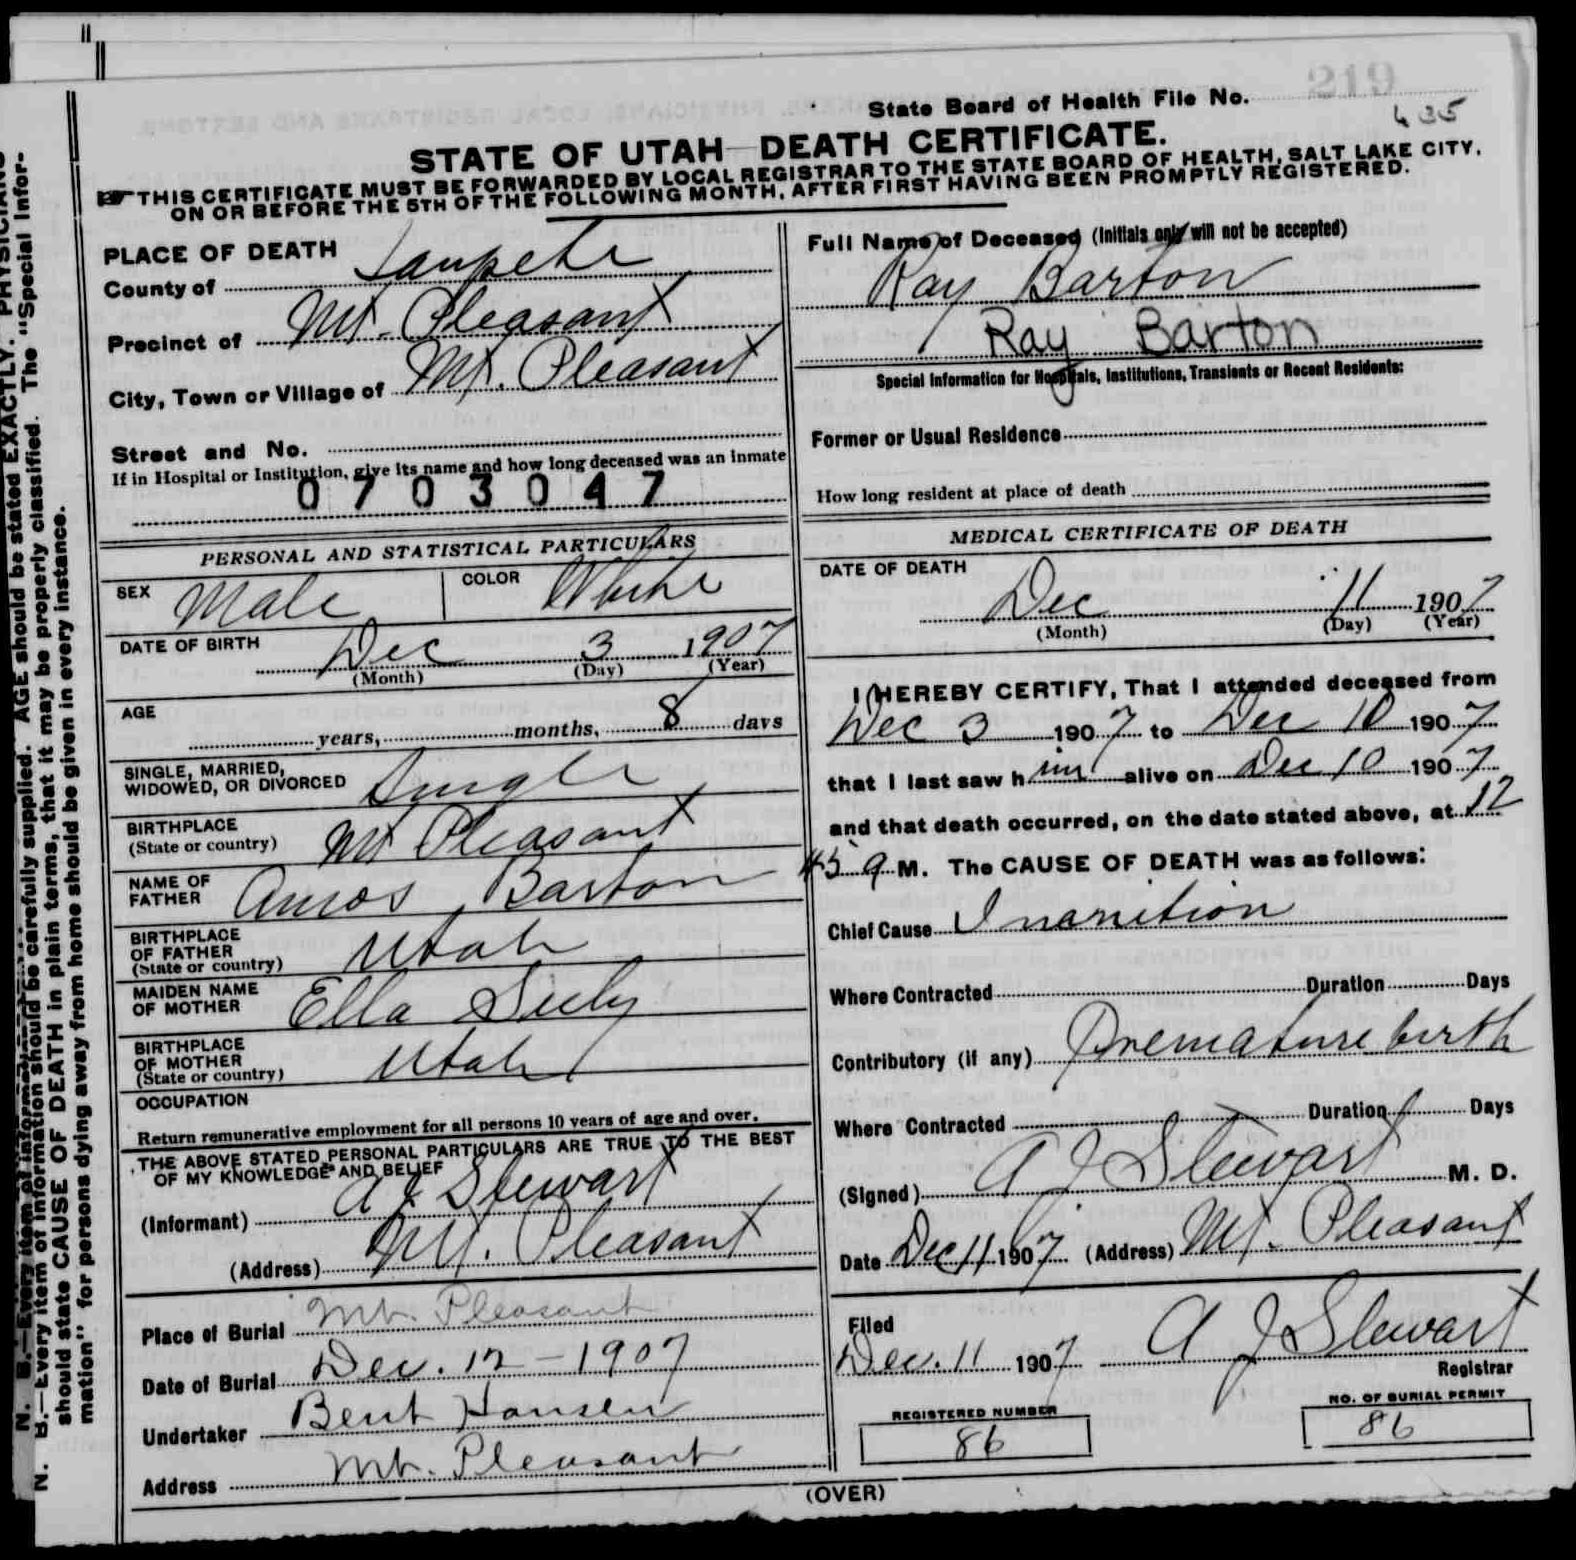 219
State Board of Health File No.
435
STATE OF UTAH—DEATH CERTIFICATE.
THIS CERTIFICATE MUST BE FORWARDED BY LOCAL REGISTRAR TO THE STATE BOARD OF HEALTH, SALT LAKE CITY,
ON OR BEFORE THE 5TH OF THE FOLLOWING MONTH, AFTER FIRST HAVING BEEN PROMPTLY REGISTERED.
PLACE OF DEATH
County of Sanpete
Precinct of Mt. Pleasant
City, Town or Village of Mt. Pleasant
Street and No.
If in Hospital or Institution, give its name and how long deceased was an inmate
0703047
PERSONAL AND STATISTICAL PARTICULARS
SEX Male COLOR White
DATE OF BIRTH Dec 3 1907
(Month) (Day) (Year)
AGE years, months, 8 days
SINGLE, MARRIED,
WIDOWED, OR DIVORCED Single
BIRTHPLACE
(State or country) Mt Pleasant
NAME OF
FATHER Amos Barton
BIRTHPLACE
OF FATHER
(State or country) Utah
MAIDEN NAME
OF MOTHER Ella Seely
BIRTHPLACE
OF MOTHER
(State or country) Utah
OCCUPATION
Return remunerative employment for all persons 10 years of age and over.
THE ABOVE STATED PERSONAL PARTICULARS ARE TRUE TO THE BEST
OF MY KNOWLEDGE AND BELIEF
(Informant) A J Stewart
(Address) Mt. Pleasant
Place of Burial Mt. Pleasant
Date of Burial Dec. 12-1907
Undertaker Bent Hansen
Address Mt. Pleasant
Full Name of Deceased (Initials only will not be accepted)
Ray Barton
Ray Barton
Special Information for Hospitals, Institutions, Transients or Recent Residents:
Former or Usual Residence
How long resident at place of death
MEDICAL CERTIFICATE OF DEATH
DATE OF DEATH
Dec 11 1907
(Month) (Day) (Year)
I HEREBY CERTIFY, That I attended deceased from
Dec 3 1907 to Dec 10 1907
that I last saw him alive on Dec 10 1907
and that death occurred, on the date stated above, at 12
45 a M. The CAUSE OF DEATH was as follows:
Chief Cause Inanition
Where Contracted Duration Days
Contributory (if any) Premature birth
Where Contracted Duration Days
(Signed) A J Stewart M. D.
Date Dec 11 1907 (Address) Mt. Pleasant
Filed
Dec. 11 1907 A J Stewart
Registrar
REGISTERED NUMBER
86
NO. OF BURIAL PERMIT
86
(OVER)
N. B.—Every item of information should be carefully supplied. AGE should be stated EXACTLY. PHYSICIANS
should state CAUSE OF DEATH in plain terms, that it may be properly classified. The "Special Infor-
mation" for persons dying away from home should be given in every instance.